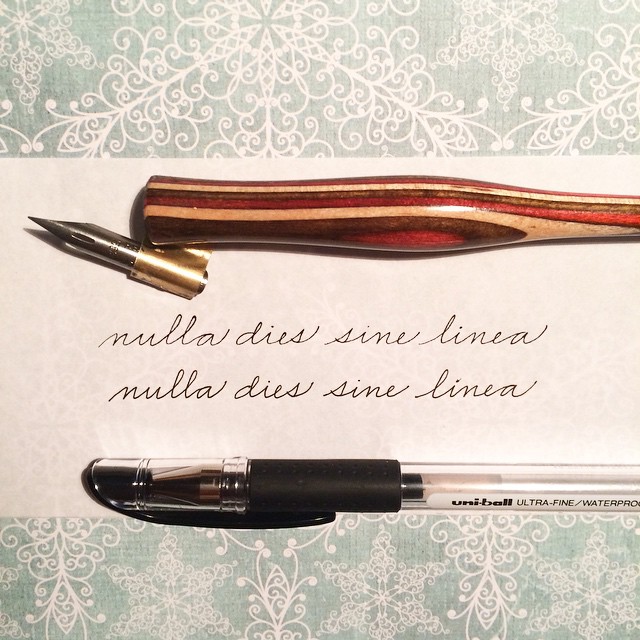 nulla dies sine linea
nulla dies sine linea
uni-ball ULTRA-FINE/WATERPROO